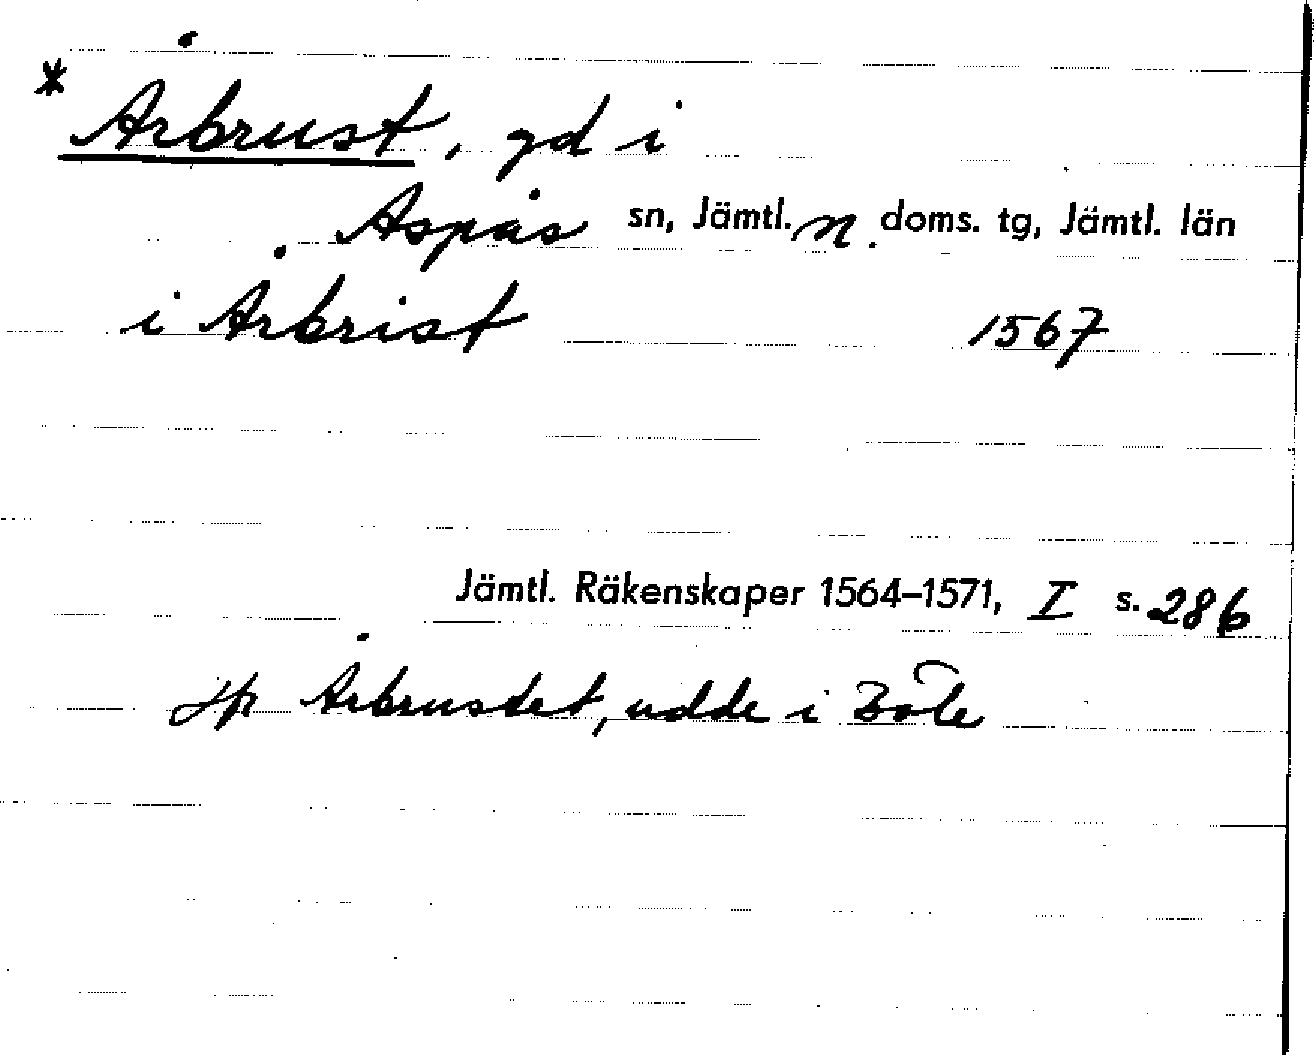 * Årbrust, gd i
Aspås sn, Jämtl. n. doms. tg, Jämtl. län
i Årbrist 1567
Jämtl. Räkenskaper 1564–1571, I s. 286
Jfr Årbrustet, udde i Böle